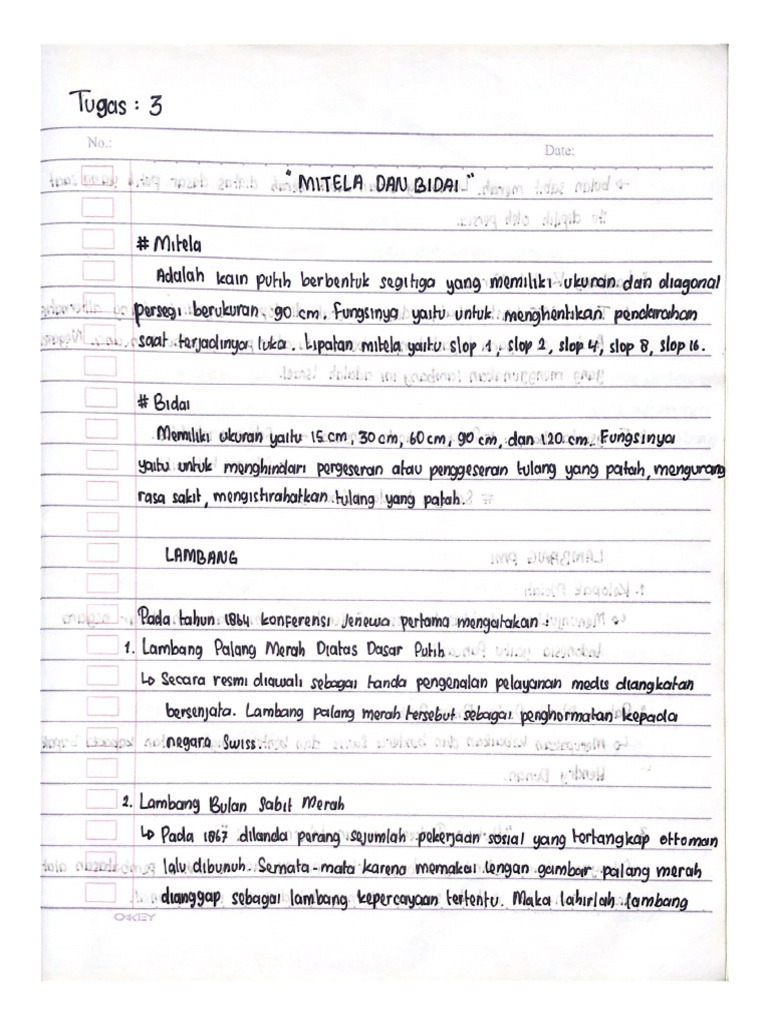 Tugas : 3
No.:
Date:
"MITELA DAN BIDAI"
# Mitela
Adalah kain putih berbentuk segitiga yang memiliki ukuran dan diagonal
persegi berukuran, 90 cm. Fungsinya yaitu untuk menghentikan pendarahan
saat terjadinya luka. Lipatan mitela yaitu slop 1, slop 2, slop 4, slop 8, slop 16.
# Bidai
Memiliki ukuran yaitu 15 cm, 30 cm, 60 cm, 90 cm, dan 120 cm. Fungsinya
yaitu untuk menghindari pergeseran atau penggeseran tulang yang patah, mengurang
rasa sakit, mengistirahatkan tulang yang patah.
LAMBANG
Pada tahun 1864 konferensi Jenewa pertama mengatakan :
1. Lambang Palang Merah Diatas Dasar Putih
↳ Secara resmi diawali sebagai tanda pengenalan pelayanan medis diangkatan
bersenjata. Lambang palang merah tersebut sebagai penghormatan kepada
negara Swiss.
2. Lambang Bulan Sabit Merah
↳ Pada 1867 dilanda perang sejumlah pekerjaan sosial yang tertangkap ottoman
lalu dibunuh. Semata-mata karena memakai lengan gambar palang merah
dianggap sebagai lambang kepercayaan tertentu. Maka lahirlah lambang
OKEY